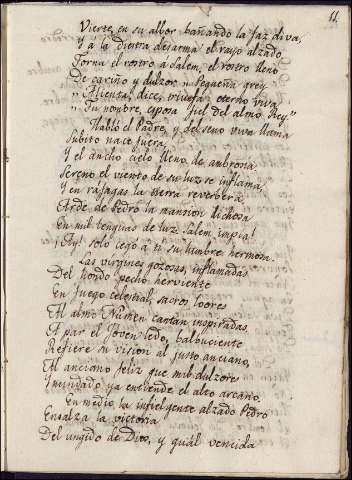 11
Vierte en su albor bañando la faz diva,
Y a la diestra desarma el rayo alzado
Torna el rostro a Salem, el rostro lleno
De cariño y dulzor. „Pequeña grey
„Alienta, dice, triunfa, eterno viva
„Tu nombre, esposa fiel del almo Rey."
Habló el Padre, y del seno viva llama
Subito nace fuera,
Y el ancho cielo lleno de ambrosia
Sereno el viento de su luz se inflama,
Y en rafagas la tierra reverbera.
Arde de Pedro la mansion dichosa
En mil lenguas de luz. Salem impia!
¡Ay! solo cegó a ti su lumbre hermosa.
Las virgines gozosas, inflamadas
Del hondo pecho herviente
En fuego celestial, sacros loores
Al almo Numen cantan inspiradas.
A par el joven ledo, balbuciente
Refiere su vision al justo anciano,
Al anciano feliz que en mil dulzores
Inundado ya entiende el alto arcano.
En medio la infiel gente alzado Pedro
Ensalza la victoria
Del ungido de Dios, y quál vencida